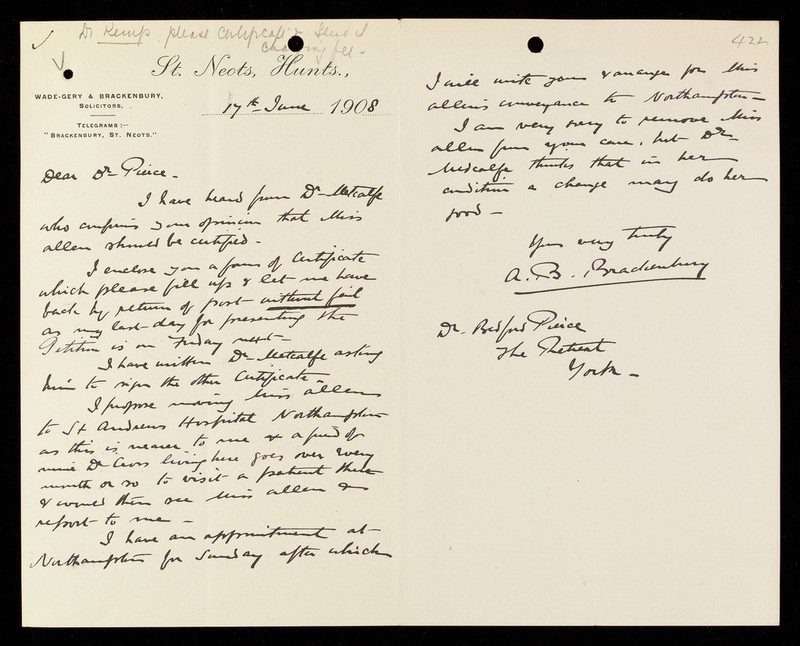 Dr Kemp please certificate & send it
charging fee -
422
St. Neots, Hunts.,
WADE-GERY & BRACKENBURY,
SOLICITORS,
TELEGRAMS:—
"BRACKENBURY, ST. NEOTS."
17th June 1908
Dear Dr Pierce -
I have heard from Dr Metcalfe
who confirms your opinion that Miss
Allen should be certified -
I enclose you a form of Certificate
which please fill up & let me have
back by return of post without fail
as my last day for presenting the
Petition is on Friday next -
I have written Dr Metcalfe asking
him to sign the other Certificate -
I propose moving Miss Allen
to St Andrews Hospital Northampton
as this is nearer to me & a friend of
mine Dr Cross living here goes over every
month or so to visit a patient there
& would then see Miss Allen &
report to me -
I have an appointment at
Northampton for Sunday after which
I will write you & arrange for Miss
Allen's conveyance to Northampton -
I am very sorry to remove Miss
Allen from your care, but Dr
Metcalfe thinks that in her
condition a change may do her
good -
Yrs very truly
A. B. Brackenbury
Dr. Bedford Pierce
The Retreat
York -